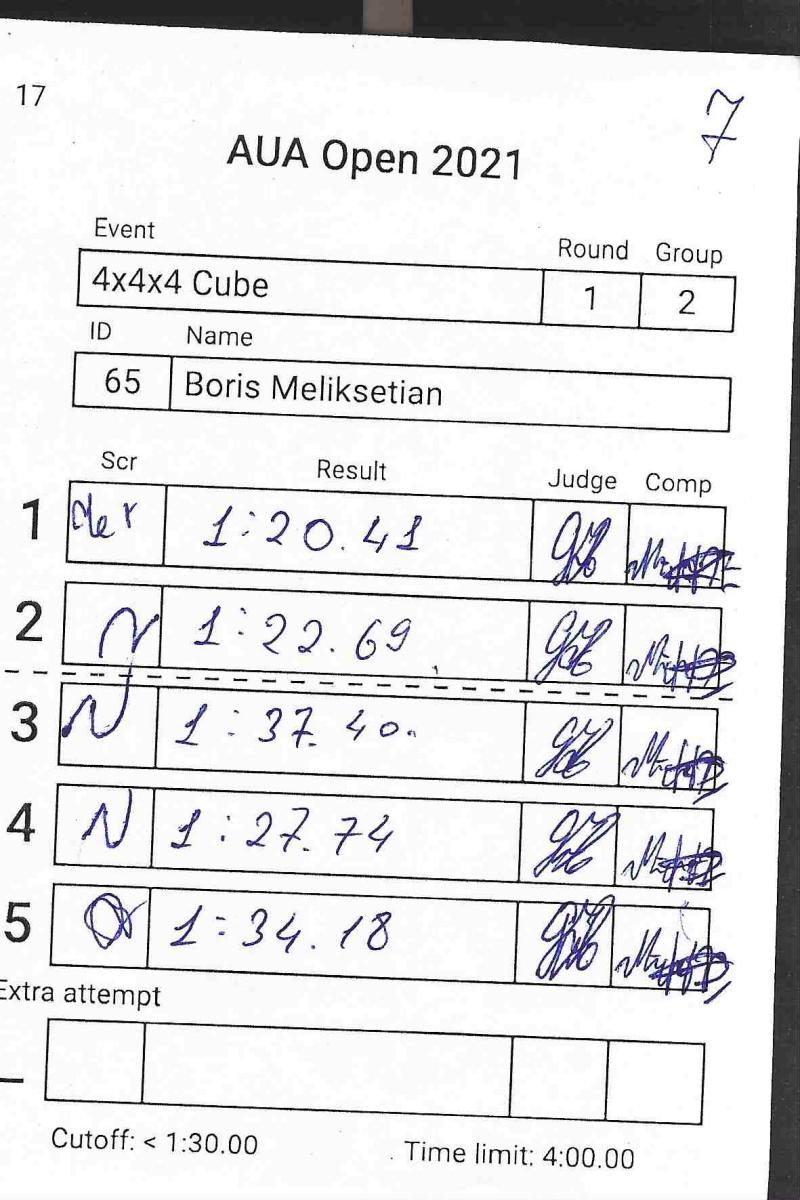 17
7
AUA Open 2021
Event Round Group
4x4x4 Cube 1 2
ID Name
65 Boris Meliksetian
Scr Result Judge Comp
1 1:20.41
2 1:22.69
3 1:37.40
4 1:27.74
5 1:34.18
Extra attempt
Cutoff: < 1:30.00 Time limit: 4:00.00